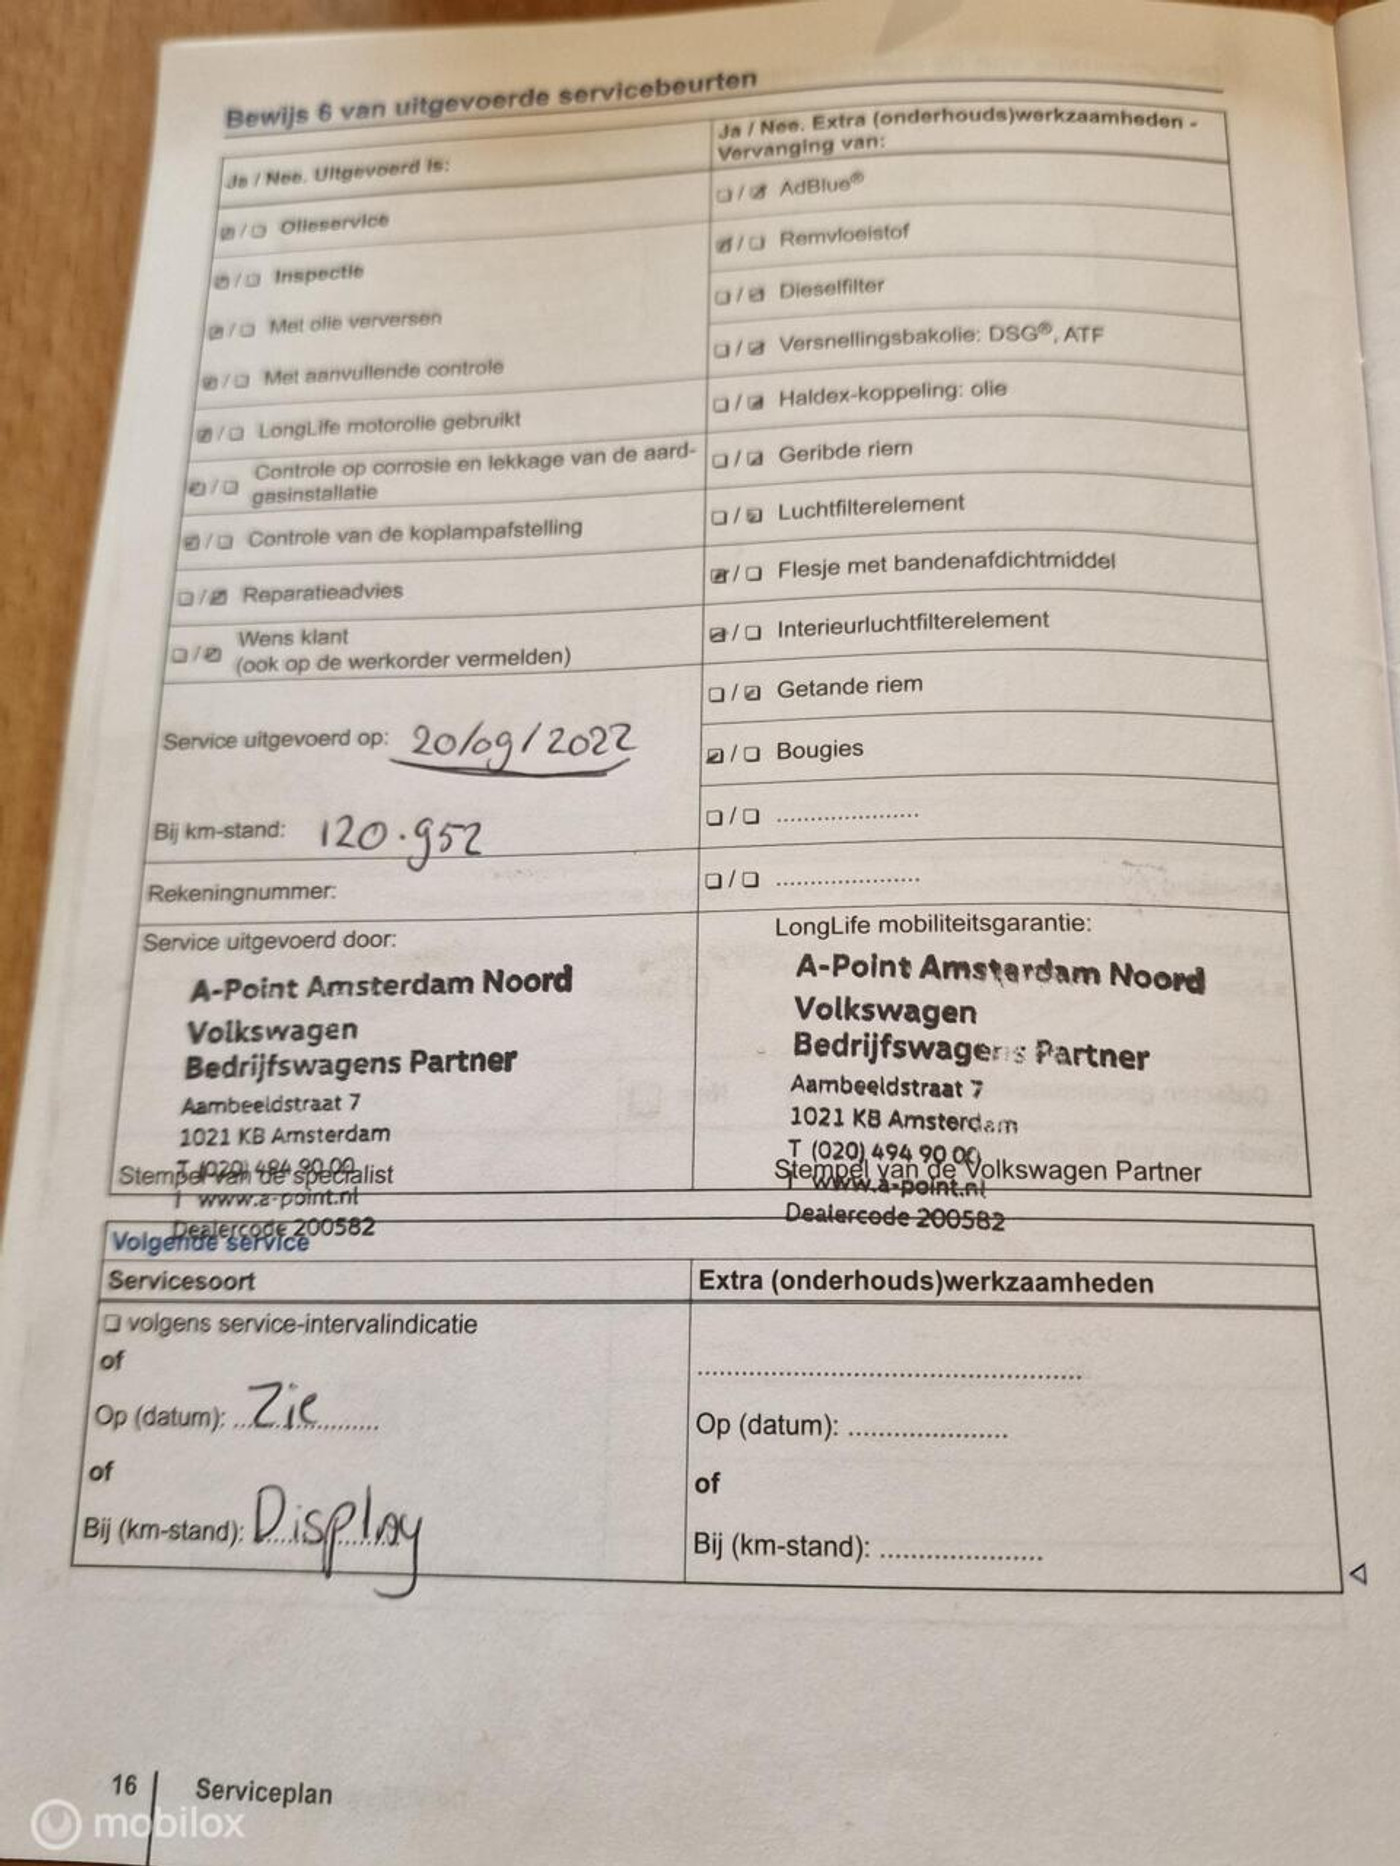 Bewijs 6 van uitgevoerde servicebeurten
Ja / Nee. Uitgevoerd is:
☑/☐ Olieservice
☑/☐ Inspectie
☑/☐ Met olie verversen
☑/☐ Met aanvullende controle
☑/☐ LongLife motorolie gebruikt
☑/☐ Controle op corrosie en lekkage van de aard-
gasinstallatie
☑/☐ Controle van de koplampafstelling
☐/☑ Reparatieadvies
☐/☑ Wens klant
(ook op de werkorder vermelden)
Service uitgevoerd op: 20/09/2022
Bij km-stand: 120.952
Rekeningnummer:
Service uitgevoerd door:
A-Point Amsterdam Noord
Volkswagen
Bedrijfswagens Partner
Aambeeldstraat 7
1021 KB Amsterdam
T (020) 494 90 00
Stempel van de specialist
I www.a-point.nl
Dealercode 200582
Ja / Nee. Extra (onderhouds)werkzaamheden -
Vervanging van:
☐/☑ AdBlue®
☑/☐ Remvloeistof
☐/☑ Dieselfilter
☐/☑ Versnellingsbakolie: DSG®, ATF
☐/☑ Haldex-koppeling: olie
☐/☑ Geribde riem
☐/☑ Luchtfilterelement
☑/☐ Flesje met bandenafdichtmiddel
☑/☐ Interieurluchtfilterelement
☐/☑ Getande riem
☑/☐ Bougies
☐/☐ .....................
☐/☐ .....................
LongLife mobiliteitsgarantie:
A-Point Amsterdam Noord
Volkswagen
Bedrijfswagens Partner
Aambeeldstraat 7
1021 KB Amsterdam
T (020) 494 90 00
Stempel van de Volkswagen Partner
I www.a-point.nl
Dealercode 200582
Volgende service
Servicesoort
☐ volgens service-intervalindicatie
of
Op (datum): Zie
of
Bij (km-stand): Display
Extra (onderhouds)werkzaamheden
.....................
Op (datum): .....................
of
Bij (km-stand): .....................
16 Serviceplan
mobilox